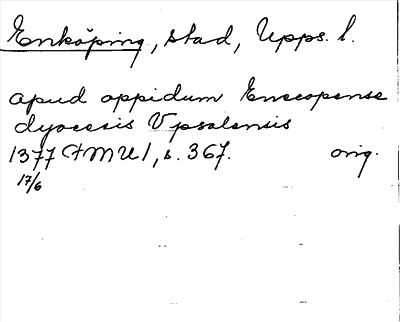 Enköping, stad, Upps. l.
apud oppidum Enecopense
dyocesis Vpsalensis
1377 FMU 1, s. 367. orig.
17/6